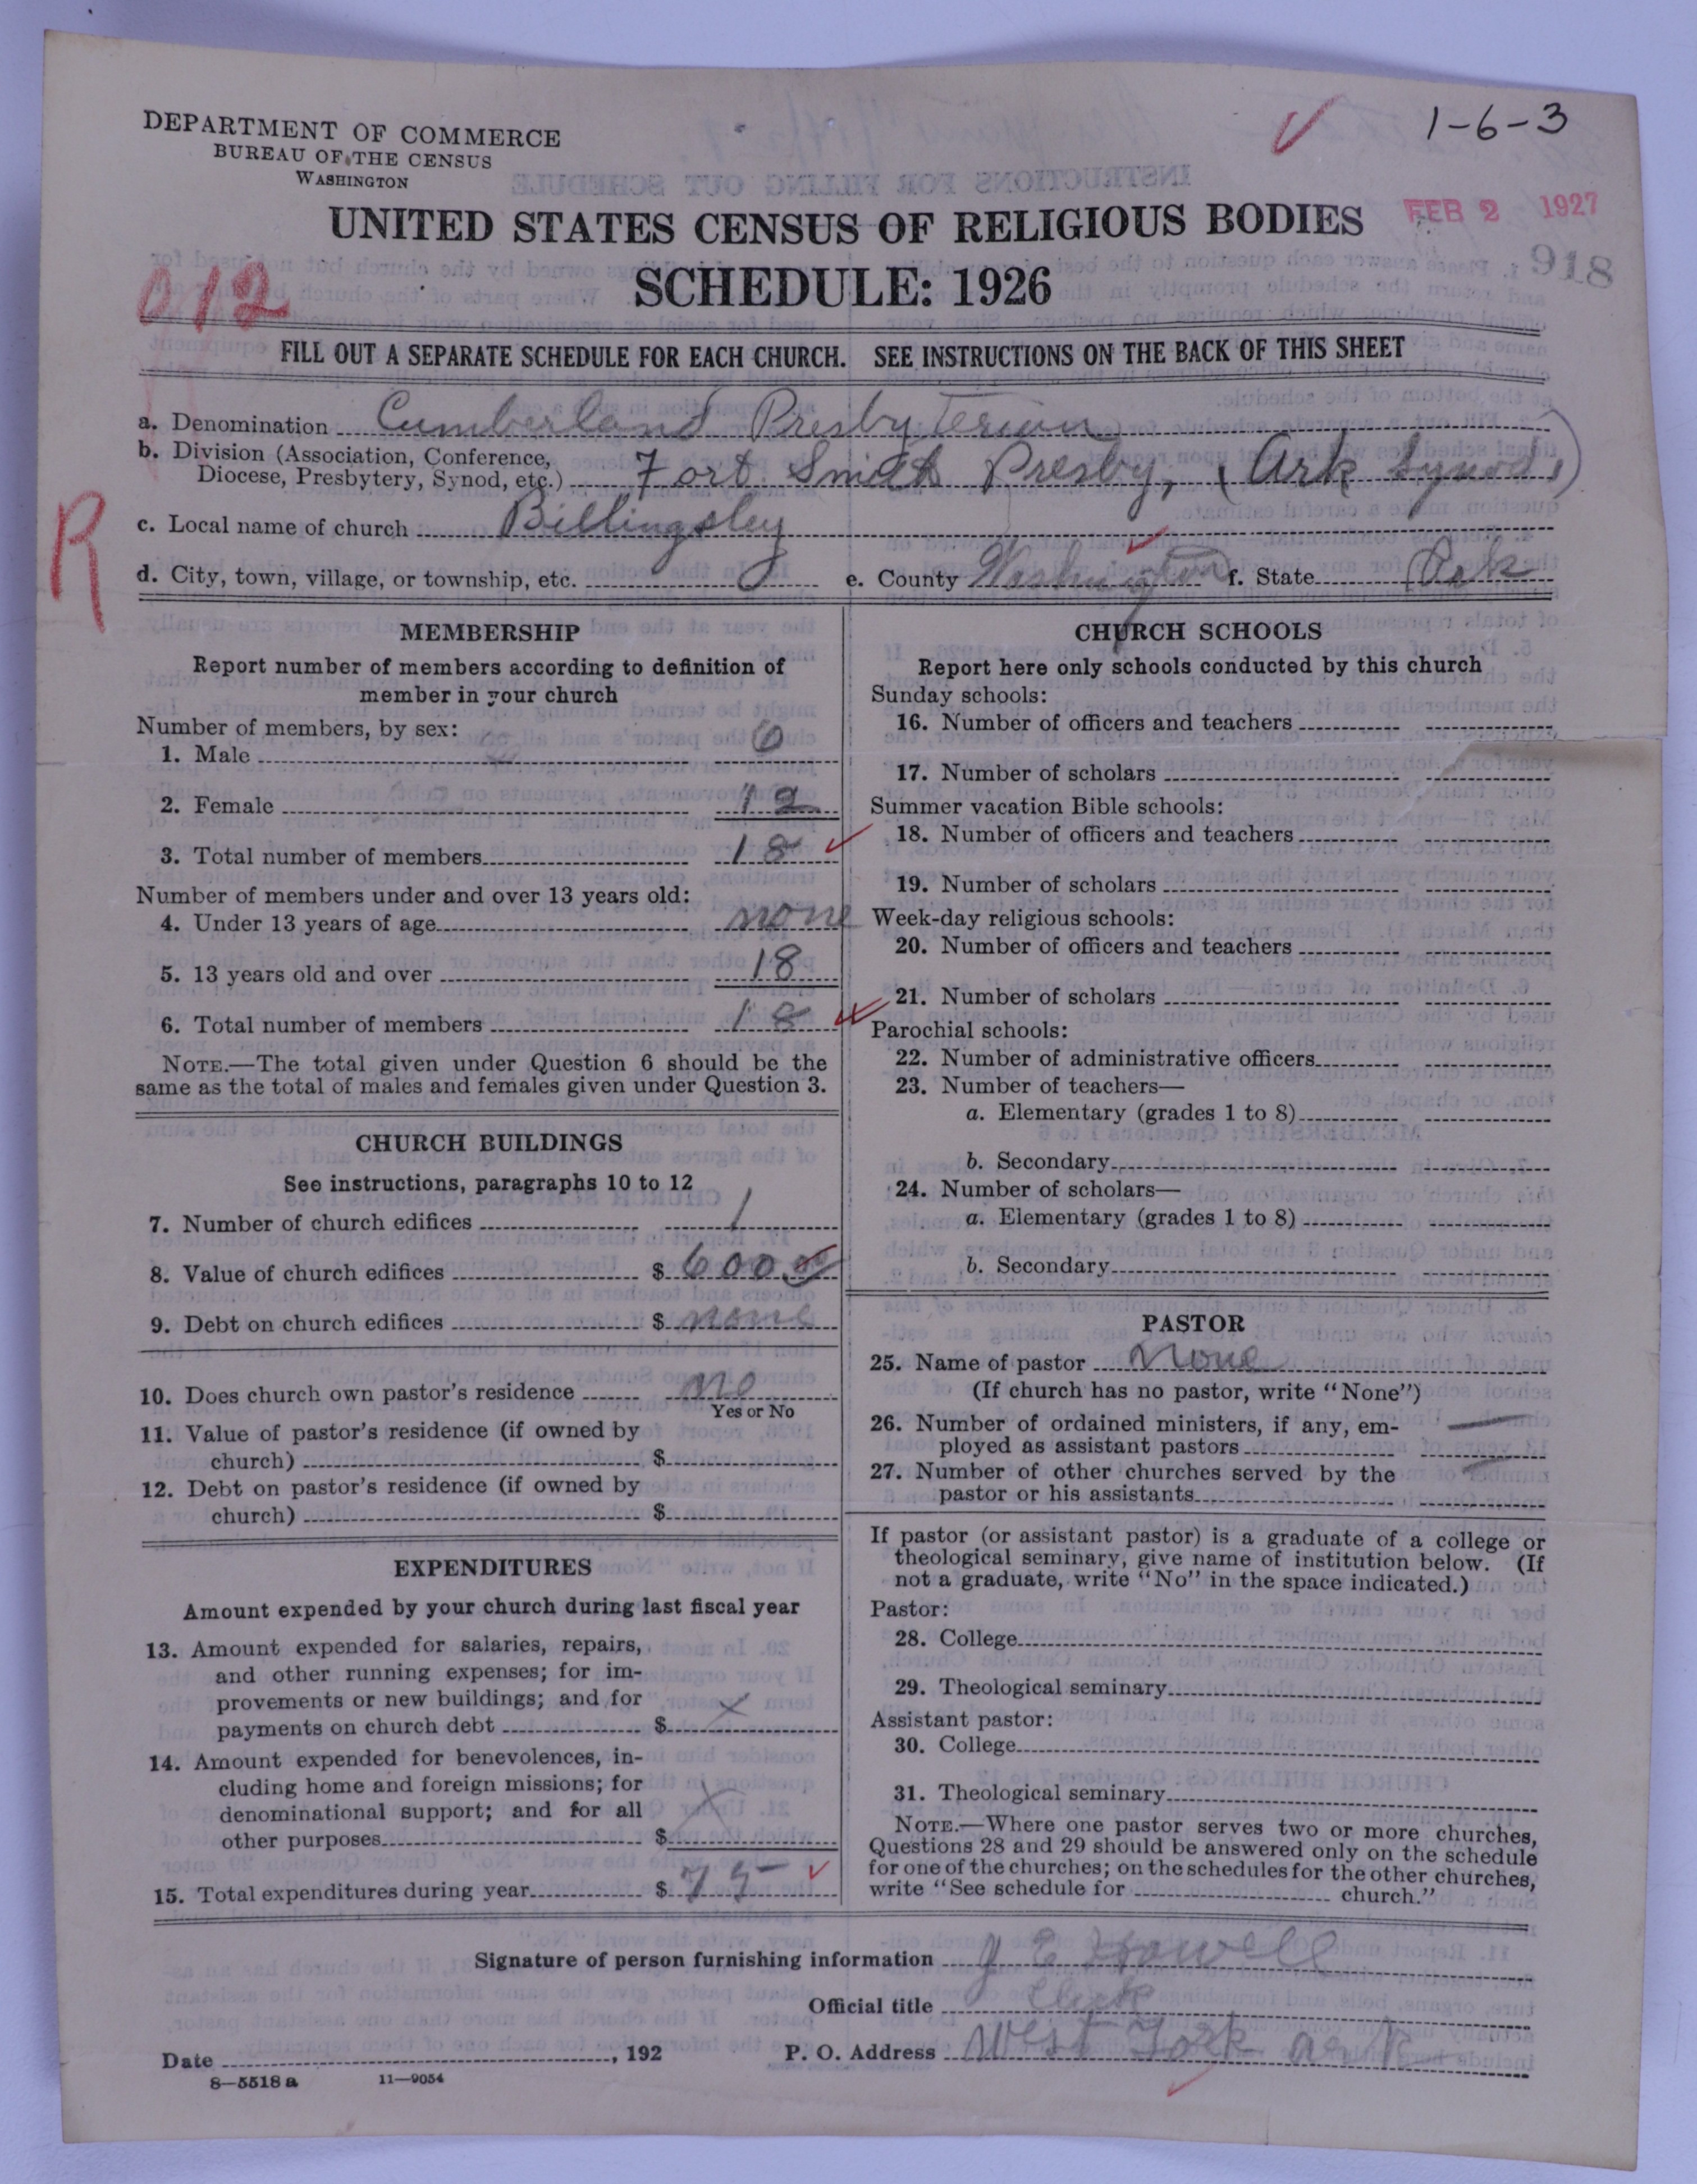 DEPARTMENT OF COMMERCE
BUREAU OF THE CENSUS
WASHINGTON
1-6-3
UNITED STATES CENSUS OF RELIGIOUS BODIES
FEB 2 1927
918
012
SCHEDULE: 1926
FILL OUT A SEPARATE SCHEDULE FOR EACH CHURCH. SEE INSTRUCTIONS ON THE BACK OF THIS SHEET
a. Denomination Cumberland Presbyterian
b. Division (Association, Conference,
Diocese, Presbytery, Synod, etc.) Fort Smith Presby, (Ark Synod)
R
c. Local name of church Billingsley
d. City, town, village, or township, etc. e. County Washington f. State Ark
MEMBERSHIP
Report number of members according to definition of
member in your church
Number of members, by sex:
1. Male 6
2. Female 12
3. Total number of members 18
Number of members under and over 13 years old:
4. Under 13 years of age none
5. 13 years old and over 18
6. Total number of members 18
NOTE.—The total given under Question 6 should be the
same as the total of males and females given under Question 3.
CHURCH BUILDINGS
See instructions, paragraphs 10 to 12
7. Number of church edifices 1
8. Value of church edifices $ 600.00
9. Debt on church edifices $ none
10. Does church own pastor's residence no
Yes or No
11. Value of pastor's residence (if owned by
church) $
12. Debt on pastor's residence (if owned by
church) $
EXPENDITURES
Amount expended by your church during last fiscal year
13. Amount expended for salaries, repairs,
and other running expenses; for im-
provements or new buildings; and for
payments on church debt $ x
14. Amount expended for benevolences, in-
cluding home and foreign missions; for
denominational support; and for all
other purposes $ x
15. Total expenditures during year $ 75
CHURCH SCHOOLS
Report here only schools conducted by this church
Sunday schools:
16. Number of officers and teachers
17. Number of scholars
Summer vacation Bible schools:
18. Number of officers and teachers
19. Number of scholars
Week-day religious schools:
20. Number of officers and teachers
21. Number of scholars
Parochial schools:
22. Number of administrative officers
23. Number of teachers—
a. Elementary (grades 1 to 8)
b. Secondary
24. Number of scholars—
a. Elementary (grades 1 to 8)
b. Secondary
PASTOR
25. Name of pastor None
(If church has no pastor, write "None")
26. Number of ordained ministers, if any, em-
ployed as assistant pastors —
27. Number of other churches served by the
pastor or his assistants —
If pastor (or assistant pastor) is a graduate of a college or
theological seminary, give name of institution below. (If
not a graduate, write "No" in the space indicated.)
Pastor:
28. College
29. Theological seminary
Assistant pastor:
30. College
31. Theological seminary
NOTE.—Where one pastor serves two or more churches,
Questions 28 and 29 should be answered only on the schedule
for one of the churches; on the schedules for the other churches,
write "See schedule for church."
Signature of person furnishing information J E Howell
Official title Clerk
Date , 192 P. O. Address West Fork ark
8—5518 a 11—9054